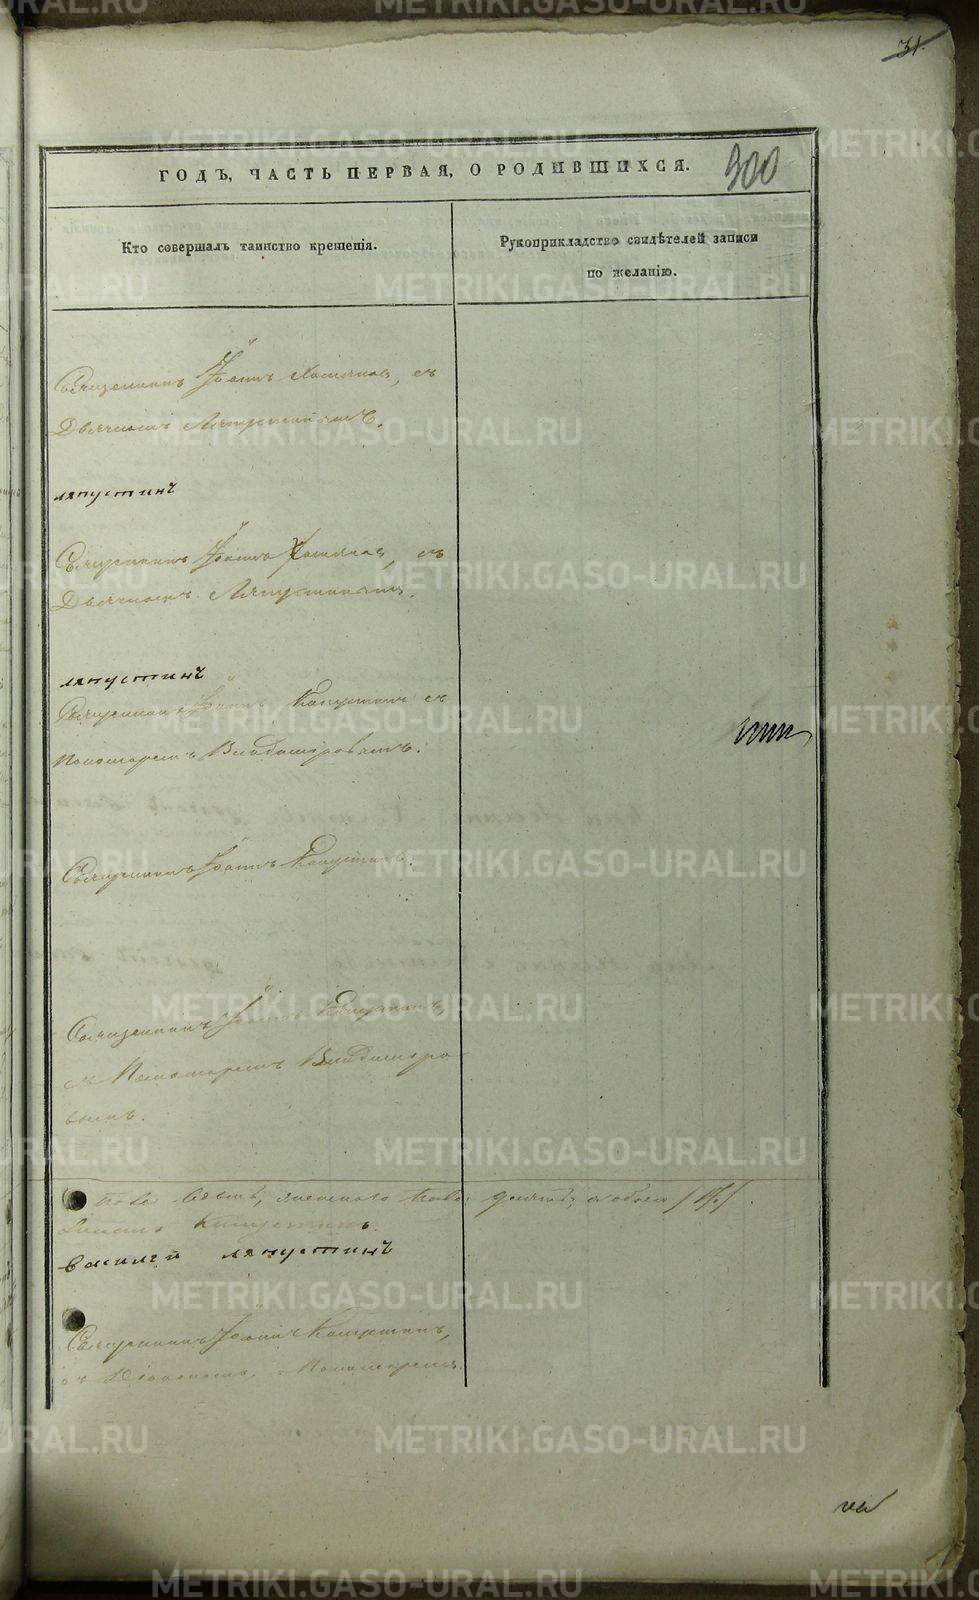 31.
ГОДЪ, ЧАСТЬ ПЕРВАЯ, О РОДИВШИХСЯ. 300
Кто совершалъ таинство крещенія.
Рукоприкладство свидѣтелей записи
по желанію.
Священникъ Іоаннъ Хотяновъ, съ
Дьячкомъ Ляпустинымъ.
ляпустинъ
Священникъ Іоаннъ съ
Дьячкомъ Ляпустинымъ.
ляпустинъ
Священникъ Іоаннъ Капустинъ съ
Пономаремъ Владимировымъ.
Священникъ Іоаннъ Капустинъ.
Священникъ Іоаннъ Капустинъ,
съ Пономаремъ Владимиро
вымъ.
Капустинъ.
василей ляпустинъ
Священникъ Іоаннъ Капустинъ,
съ Діакономъ, и Пономаремъ
METRIKI.GASO-URAL.RU